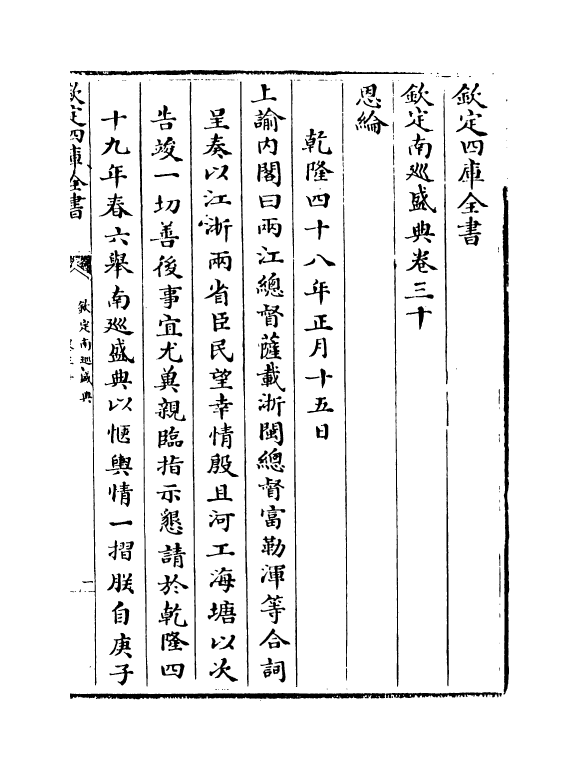 欽定四庫全書
欽定南巡盛典卷三十
恩綸
乾隆四十八年正月十五日
上諭內閣曰兩江總督薩載浙閩總督富勒渾等合詞
呈奏以江浙兩省臣民望幸情殷且河工海塘以次
告竣一切善後事宜尤冀親臨指示懇請於乾隆四
十九年春六舉南巡盛典以愜輿情一摺朕自庚子
欽定四庫全書
欽定南巡盛典
卷三十
一